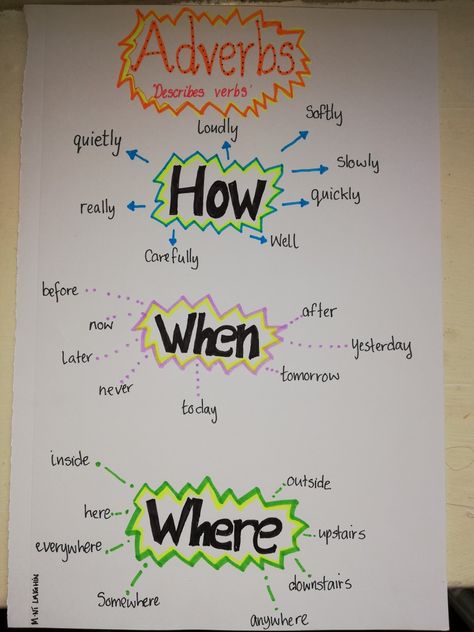 Adverbs
'Describes verbs'
quietly
Loudly
Softly
Slowly
quickly
Well
Carefully
really
How
before
now
Later
never
today
tomorrow
yesterday
after
When
inside
here
everywhere
Somewhere
anywhere
downstairs
upstairs
outside
Where